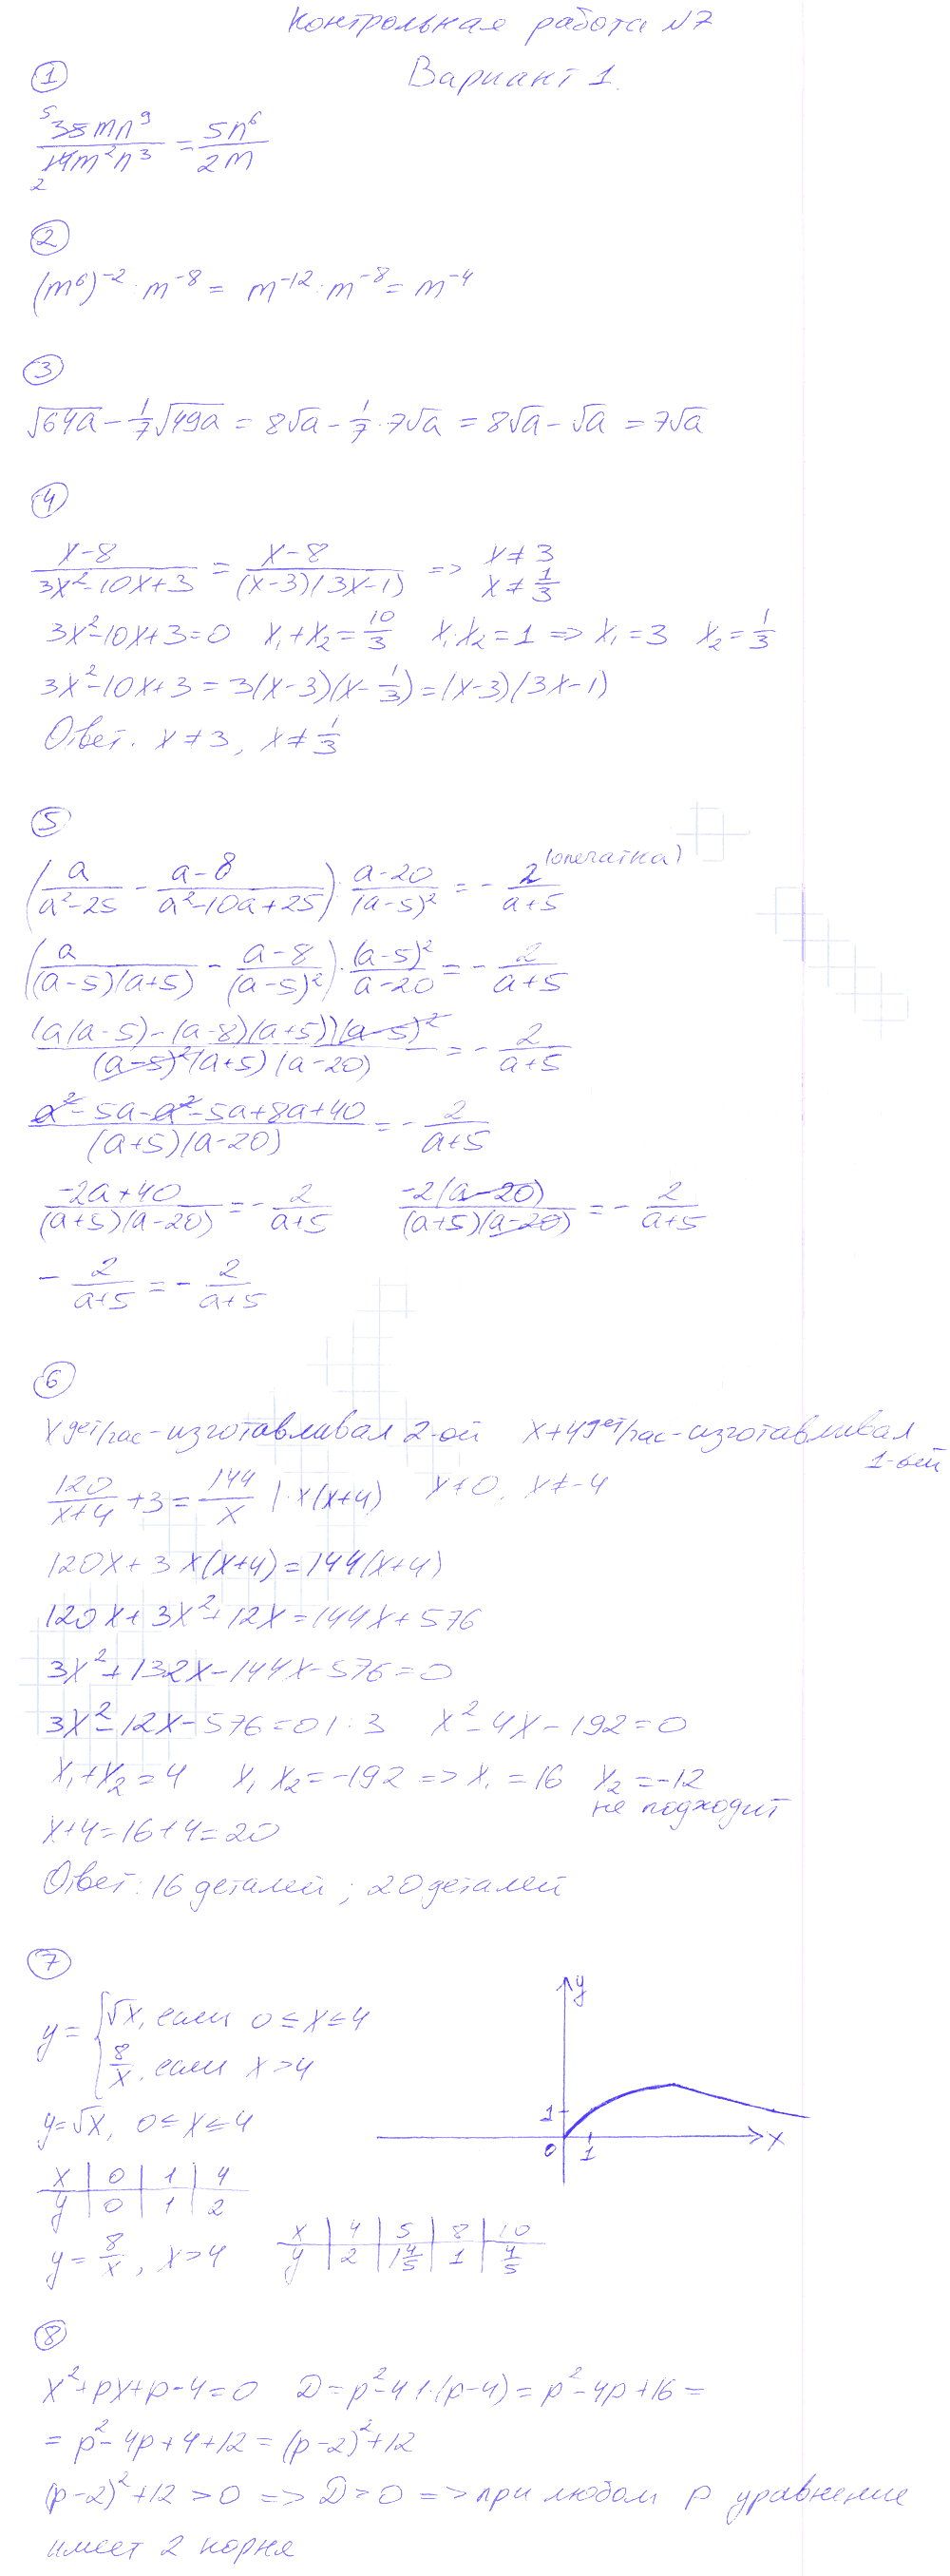 Контрольная работа N7
Вариант 1.
1
35mn⁹/14m²n³ = 5n⁶/2m
5
2
2
(m⁶)⁻² : m⁻⁸ = m⁻¹² : m⁻⁸ = m⁻⁴
3
√64a − 1/7 √49a = 8√a − 1/7 · 7√a = 8√a − √a = 7√a
4
x−8/(3x²−10x+3) = x−8/((x−3)(3x−1)) => x≠3
x≠1/3
3x²−10x+3=0 x₁+x₂=10/3 x₁·x₂=1 => x₁=3 x₂=1/3
3x²−10x+3=3(x−3)(x−1/3)=(x−3)(3x−1)
Ответ. x≠3, x≠1/3
5
(a/(a²−25) − (a−8)/(a²−10a+25)) : (a−20)/(a−5)² = − 2/(a+5) (опечатка)
(a/((a−5)(a+5)) − (a−8)/(a−5)²) · (a−5)²/(a−20) = − 2/(a+5)
(a(a−5)−(a−8)(a+5))(a−5)²/((a−5)²(a+5)(a−20)) = − 2/(a+5)
(a²−5a−a²−5a+8a+40)/((a+5)(a−20)) = − 2/(a+5)
(−2a+40)/((a+5)(a−20)) = − 2/(a+5) −2(a−20)/((a+5)(a−20)) = − 2/(a+5)
− 2/(a+5) = − 2/(a+5)
6
x дет/час − изготавливал 2-ой x+4 дет/час − изготавливал
1-ый
120/(x+4) + 3 = 144/x | · x(x+4) x≠0, x≠−4
120x+3x(x+4)=144(x+4)
120x+3x²+12x=144x+576
3x²+132x−144x−576=0
3x²−12x−576=0 | : 3 x²−4x−192=0
x₁+x₂=4 x₁x₂=−192 => x₁=16 x₂=−12
не подходит
x+4=16+4=20
Ответ: 16 деталей ; 20 деталей
7
y = { √x, если 0≤x≤4
8/x, если x>4
y=√x, 0≤x≤4
x | 0 | 1 | 4
y | 0 | 1 | 2
y=8/x, x>4
x | 4 | 5 | 8 | 10
y | 2 | 1 4/5 | 1 | 4/5
y
1
0
1
x
8
x²+px+p−4=0 D=p²−4·1·(p−4)=p²−4p+16=
=p²−4p+4+12=(p−2)²+12
(p−2)²+12>0 => D>0 => при любом p уравнение
имеет 2 корня